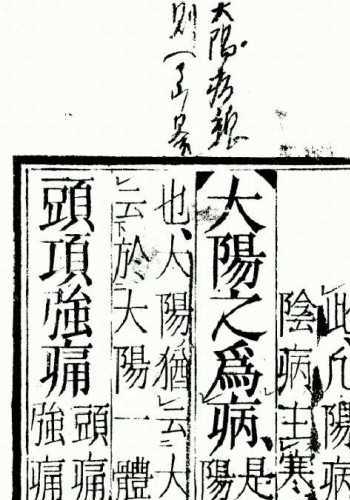 太陽病
此凡陽病
陰病主寒
大陽之爲病、
是
陽
也、大陽猶云大
云於大陽一體
頭項強痛
頭痛
強痛